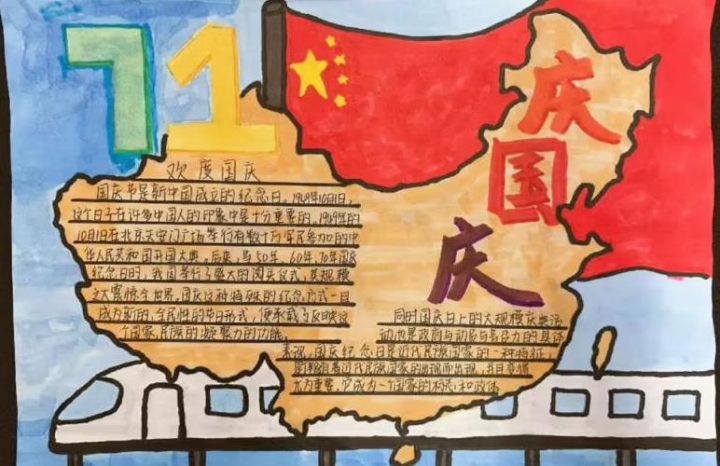 71
庆
国
庆
欢度国庆
国庆节是新中国成立的纪念日。1949年10月1日,
这个日子在许多中国人的印象中是十分重要的。1949年的
10月1日在北京天安门广场举行有数十万军民参加的中
华人民共和国开国大典,后来,与50年、60年、70年国庆
纪念日时,我国举行了盛大的国庆仪式,其规模
之大震惊全世界。国庆这种特殊的纪念方式一旦
成为新的、全民性的节日形式,便承载了反映这
个国家、民族的凝聚力的功能。
同时国庆日上的大规模庆典活
动也是政府与动员与号召力的具体
来说,国庆纪念日是近代民族国家的一种特征
是伴随着近代民族国家的出现而出现,并且变得
尤为重要,它成为一个国家的 和政体